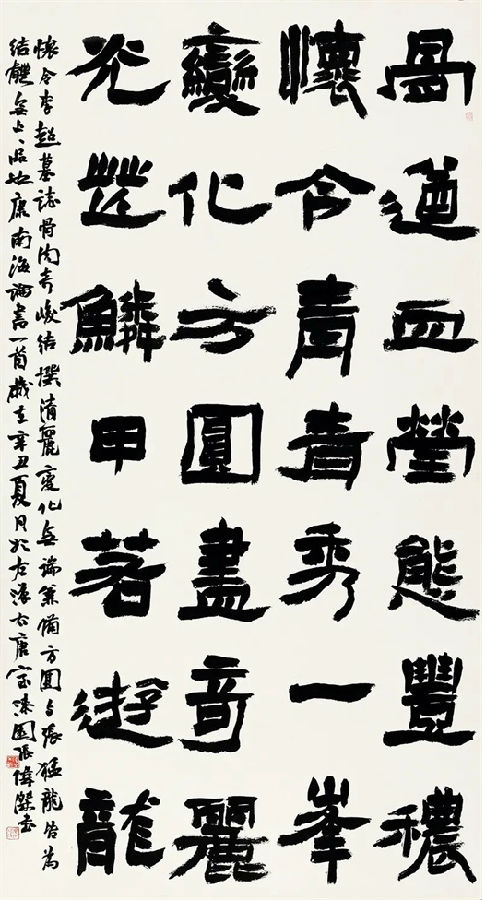 骨遒血瑩態豐穠
懷令青青秀一峰
變化方圓盡奇麗
光芒鱗甲若遊龍
懷令李超墓誌骨肉奇峻結撰清麗變化無端兼備方圓與張猛龍皆為
結體無上之品也康南海論書一首歲在辛丑夏月於古濠漆園張偉傑書